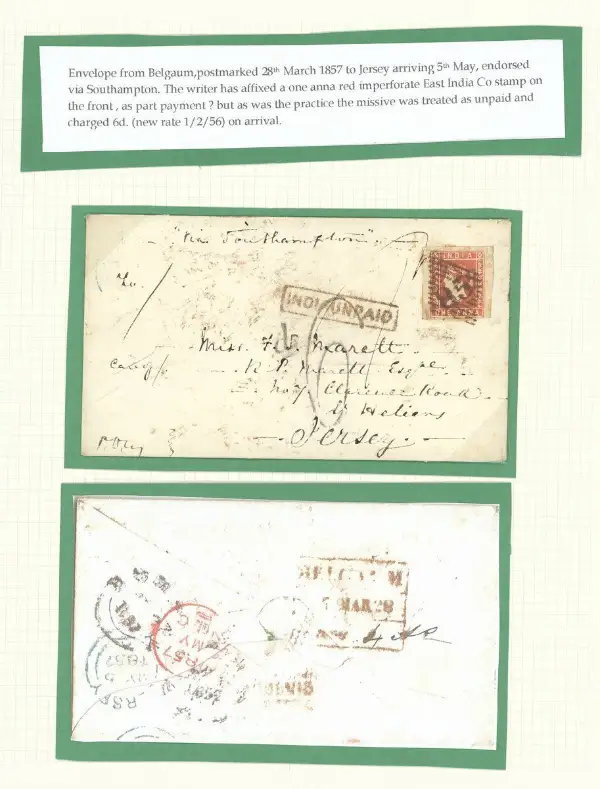 Envelope from Belgaum,postmarked 28th March 1857 to Jersey arriving 5th May, endorsed
via Southampton. The writer has affixed a one anna red imperforate East India Co stamp on
the front , as part payment ? but as was the practice the missive was treated as unpaid and
charged 6d. (new rate 1/2/56) on arrival.
"via Southampton"
INDIA
ONE ANNA
INDIA UNPAID
Miss. F. Marett
R. P. Marett Esqre
Clarence Road
St Heliers
Jersey
BELGAUM
MAR 28
MY
1857
MY 5
1857